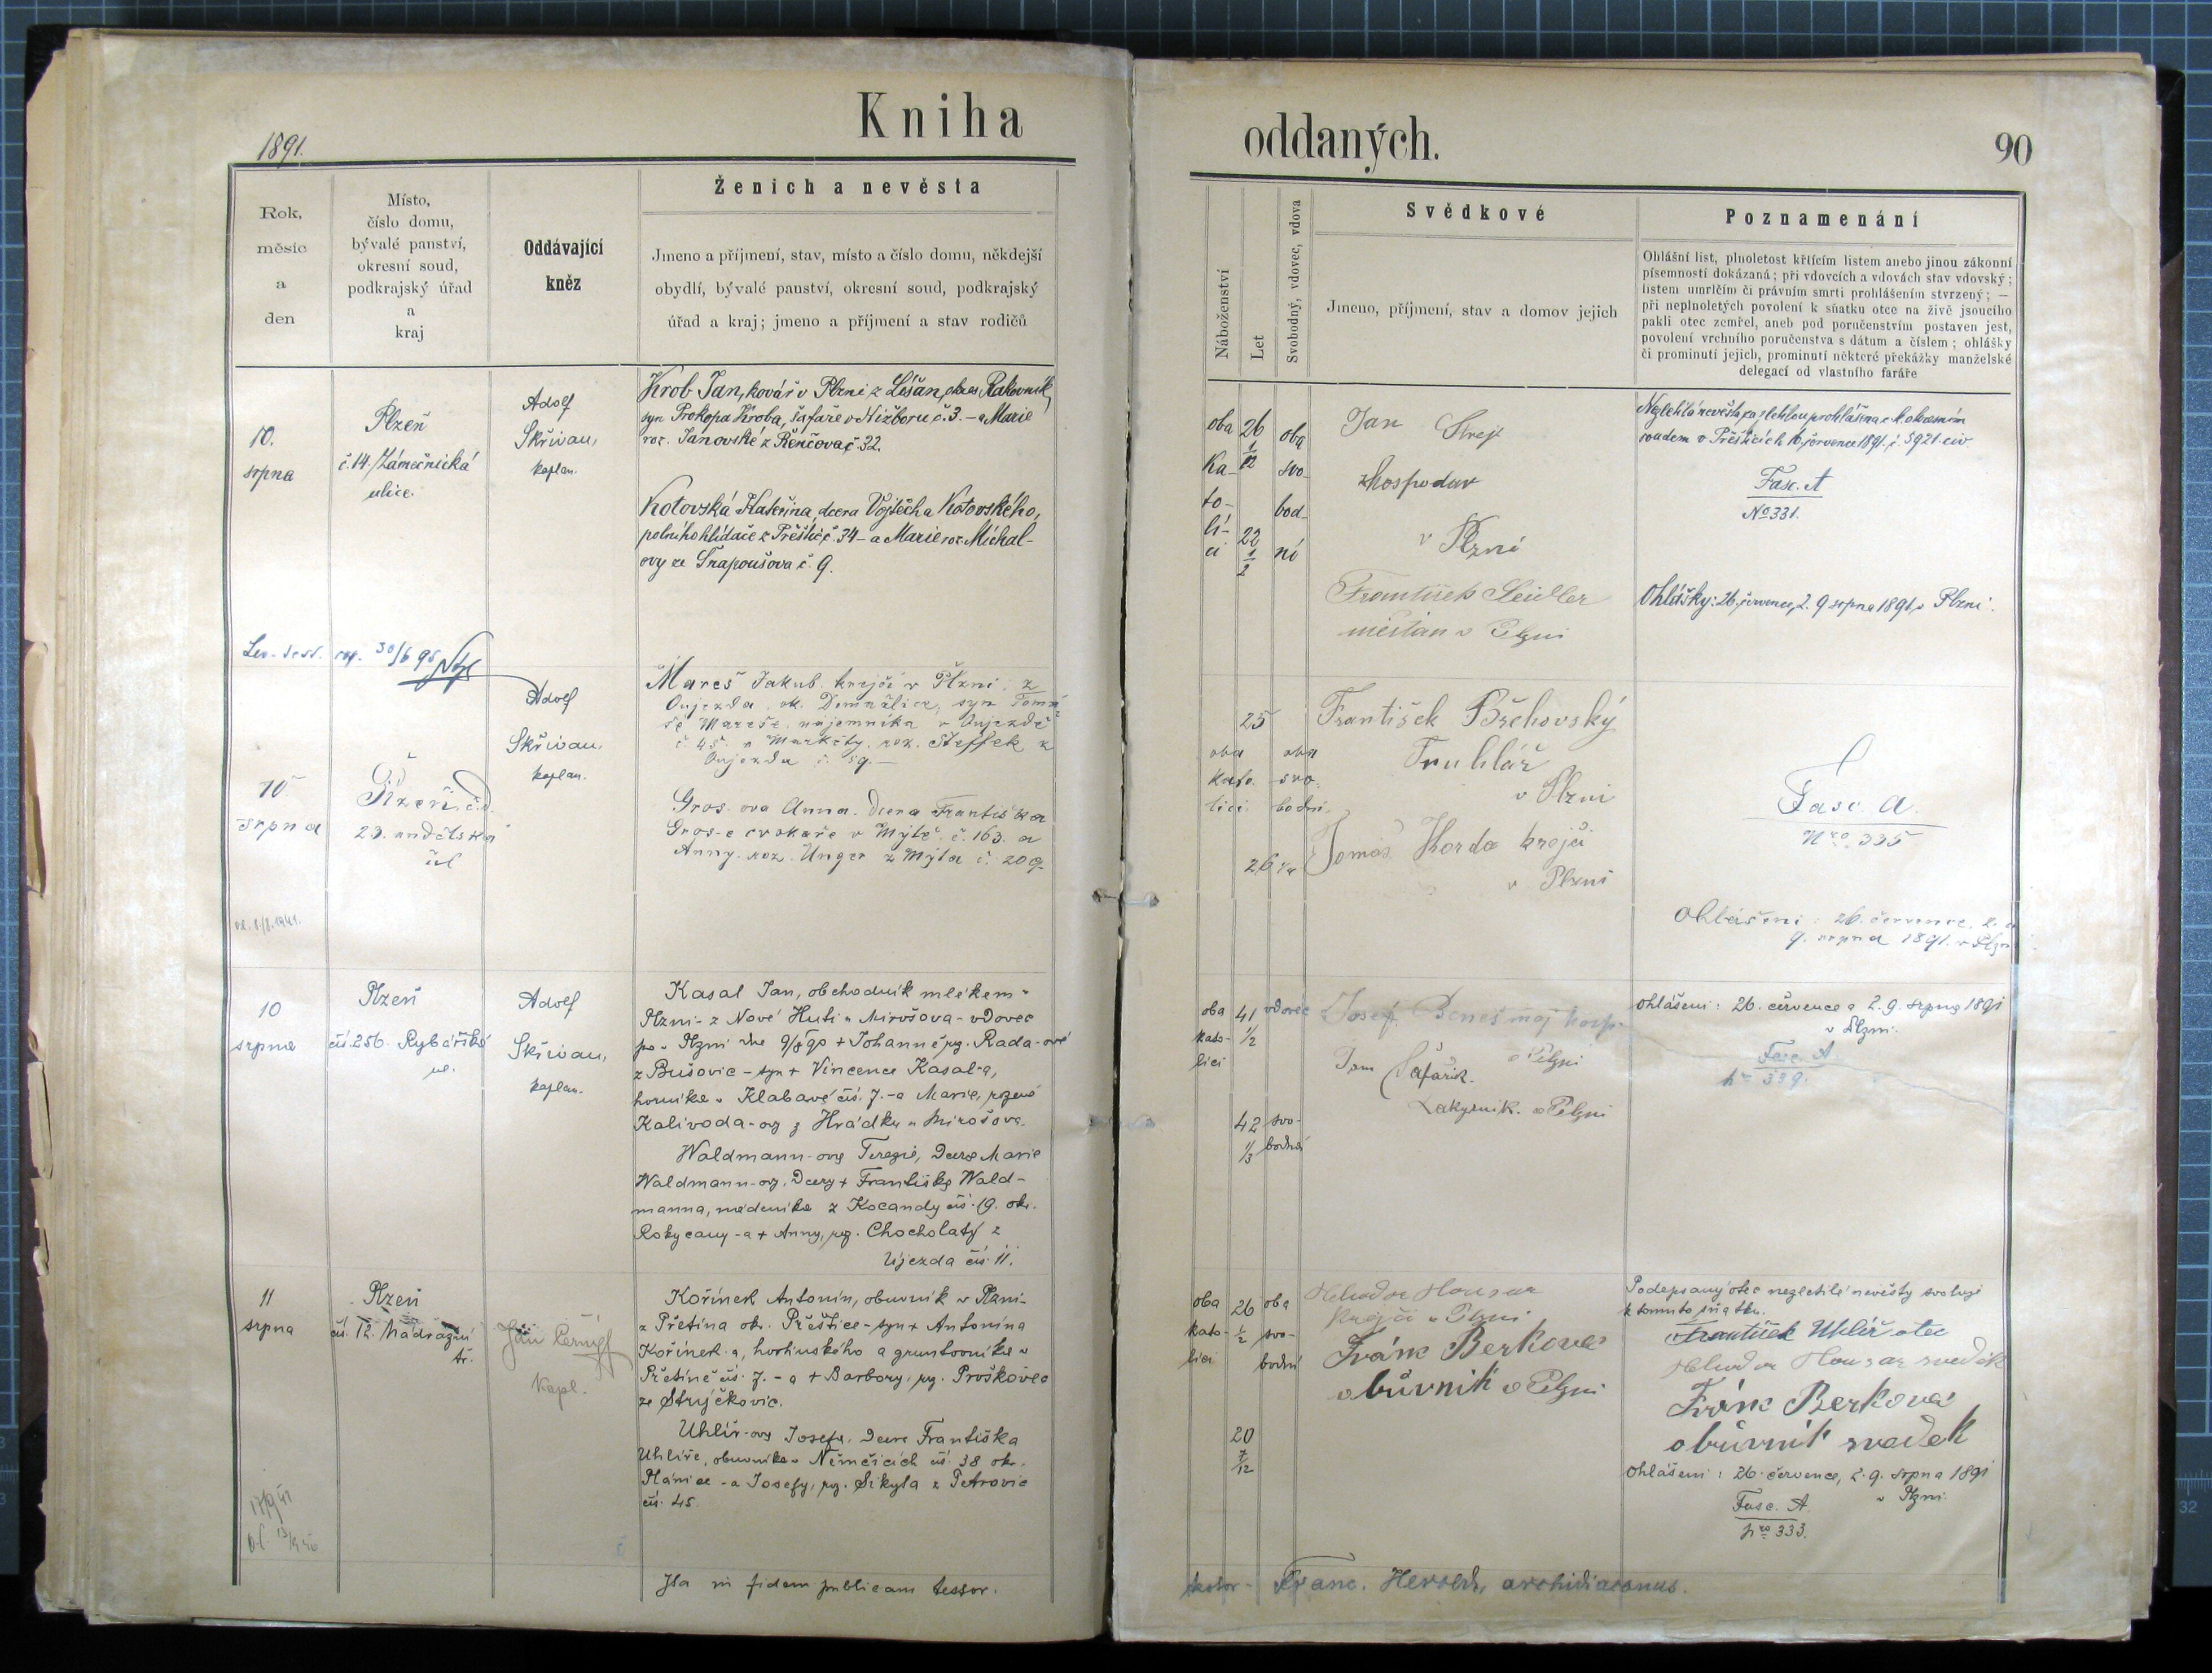 Kniha
1891.
Rok,
měsíc
a
den
Místo,
číslo domu,
bývalé panství,
okresní soud,
podkrajský úřad
a
kraj
Oddávající
kněz
Ženich a nevěsta
Jmeno a příjmení, stav, místo a číslo domu, někdejší
obydlí, bývalé panství, okresní soud, podkrajský
úřad a kraj; jmeno a příjmení a stav rodičů
10.
srpna
Plzeň
č. 14. Zámečnická
ulice.
Adolf
Skřivan,
kaplan.
Krob Jan, kovář v Plzni z Lišan, okres Rakovník,
syn Prokopa Kroba, šafáře v Nižboru č. 3. - a Marie
roz. Janovské z Řenčova č. 32.
Kotovská Kateřina, dcera Vojtěcha Kotovského,
polního hlídače z Přeštic č. 34 - a Marie roz. Michal-
ovy ze Snapoušova č. 9.
30/6 95
10
srpna
Plzeň, č. d.
23. andělská
ul
Adolf
Skřivan,
kaplan.
Mareš Jakub krejčí v Plzni, z
Oujezda ok. Domažlice, syn Tomá-
še Mareše, nájemníka v Oujezdě
č 48. a Markéty, roz. Steffek z
Oujezda č. 59. -
Gros-ova Anna. dcera Františka
Gros-e cvokaře v Mýtě č. 163. a
Anny. roz. Unger z Mýta č. 209.
10
srpna
Plzeň
čís. 256. Rybářská
ul.
Adolf
Skřivan,
kaplan.
Kasal Jan, obchodník mlékem v
Plzni - z Nové Huti u Mirošova - vdovec
po v Plzni dne 9/8 90 + Johanně, rz. Rada-ově
z Bušovic - syn + Vincence Kasal-a,
horníka v Klabavě čís. 7. - a Marie, rozené
Kalivoda-ovy z Hrádku u Mirošova.
Waldmann-ova Terezie, dcera Marie
Waldmann-ovy, dcery + Františka Wald-
manna, mědeníka z Kocandy čís. 19. okr.
Rokycany - a + Anny, rz. Chocholatý z
Újezda čís. 11.
11
srpna
Plzeň
čís. 12. Nádražní
tř.
Jan Černý
kapl.
Kořínek Antonín, obuvník v Plzni -
z Přetína ok. Přeštice - syn + Antonína
Kořínek-a, hostinského a gruntovníka v
Přetíně čís. 7. - a + Barbory, rz. Proškovec
ze Strýčkovic.
Uhlíř-ova Josefa, dcera Františka
Uhlíře, obuvníka v Němčicích čís. 38 okr.
Plánice - a Josefy, rz. Sikyta z Petrovic
čís. 45.
Ita in fidem publicam testor.
oddaných.
90
Náboženství
Let
Svobodný, vdovec, vdova
Svědkové
Jmeno, příjmení, stav a domov jejich
Poznamenání
Ohlášní list, plnoletost křtícím listem anebo jinou zákonní
písemností dokázaná; při vdovcích a vdovách stav vdovský;
listem umrlčím či právním smrti prohlášením stvrzený; —
při neplnoletých povolení k sňatku otce na živě jsoucího
pakli otec zemřel, aneb pod poručenstvím postaven jest,
povolení vrchního poručenstva s dátum a číslem; ohlášky
či prominutí jejich, prominutí některé překážky manželské
delegací od vlastního faráře
oba
ka-
to-
lí-
ci
26
1/12
22
1/2
oba
svo-
bod-
ní
Jan Strejc
hospodar
v Plzni
František Seidler
měšťan v Plzni
Nezletilá nevěsta za zletilou prohlášena c. k. okresním
soudem v Přešticích 16. července 1891. č. 5921 civ.
Fasc. A
No 331.
Ohlášky: 26. července, 2. 9 srpna 1891, v Plzni.
oba
kato-
líci.
25
26 1/4
oba
svo-
bodní.
František Břehovský
Truhlář
v Plzni
Tomáš Korda krejčí
v Plzni
Fasc. A.
Nro 335
Ohlášeni: 26. července, 2. a
9. srpna 1891. v Plzni.
oba
kato-
líci
41
1/2
42
1/3
vdovec
svo-
bodná
Josef Beneš maj hosp.
v Plzni
Jan Šafařík.
v Plzni
ohlášeni: 26. července a 2. 9. srpna 1891
v Plzni.
Fasc. A.
No 339.
oba
kato-
líci
26
1/2
20
7/12
oba
svo-
bodní
Krejčí v Plzni
Fránc Berkovec
obůvník v Plzni
Podepsaný otec nezletilé nevěsty svoluje
k tomuto sňatku.
František Uhlíř otec
svědek
Fránc Berkovec
obůvník svedek
Ohlášeni: 26. července, 2. 9. srpna 1891
v Plzni.
Fasc. A.
Nro 333.
Franc. Herold, archidiaconus.